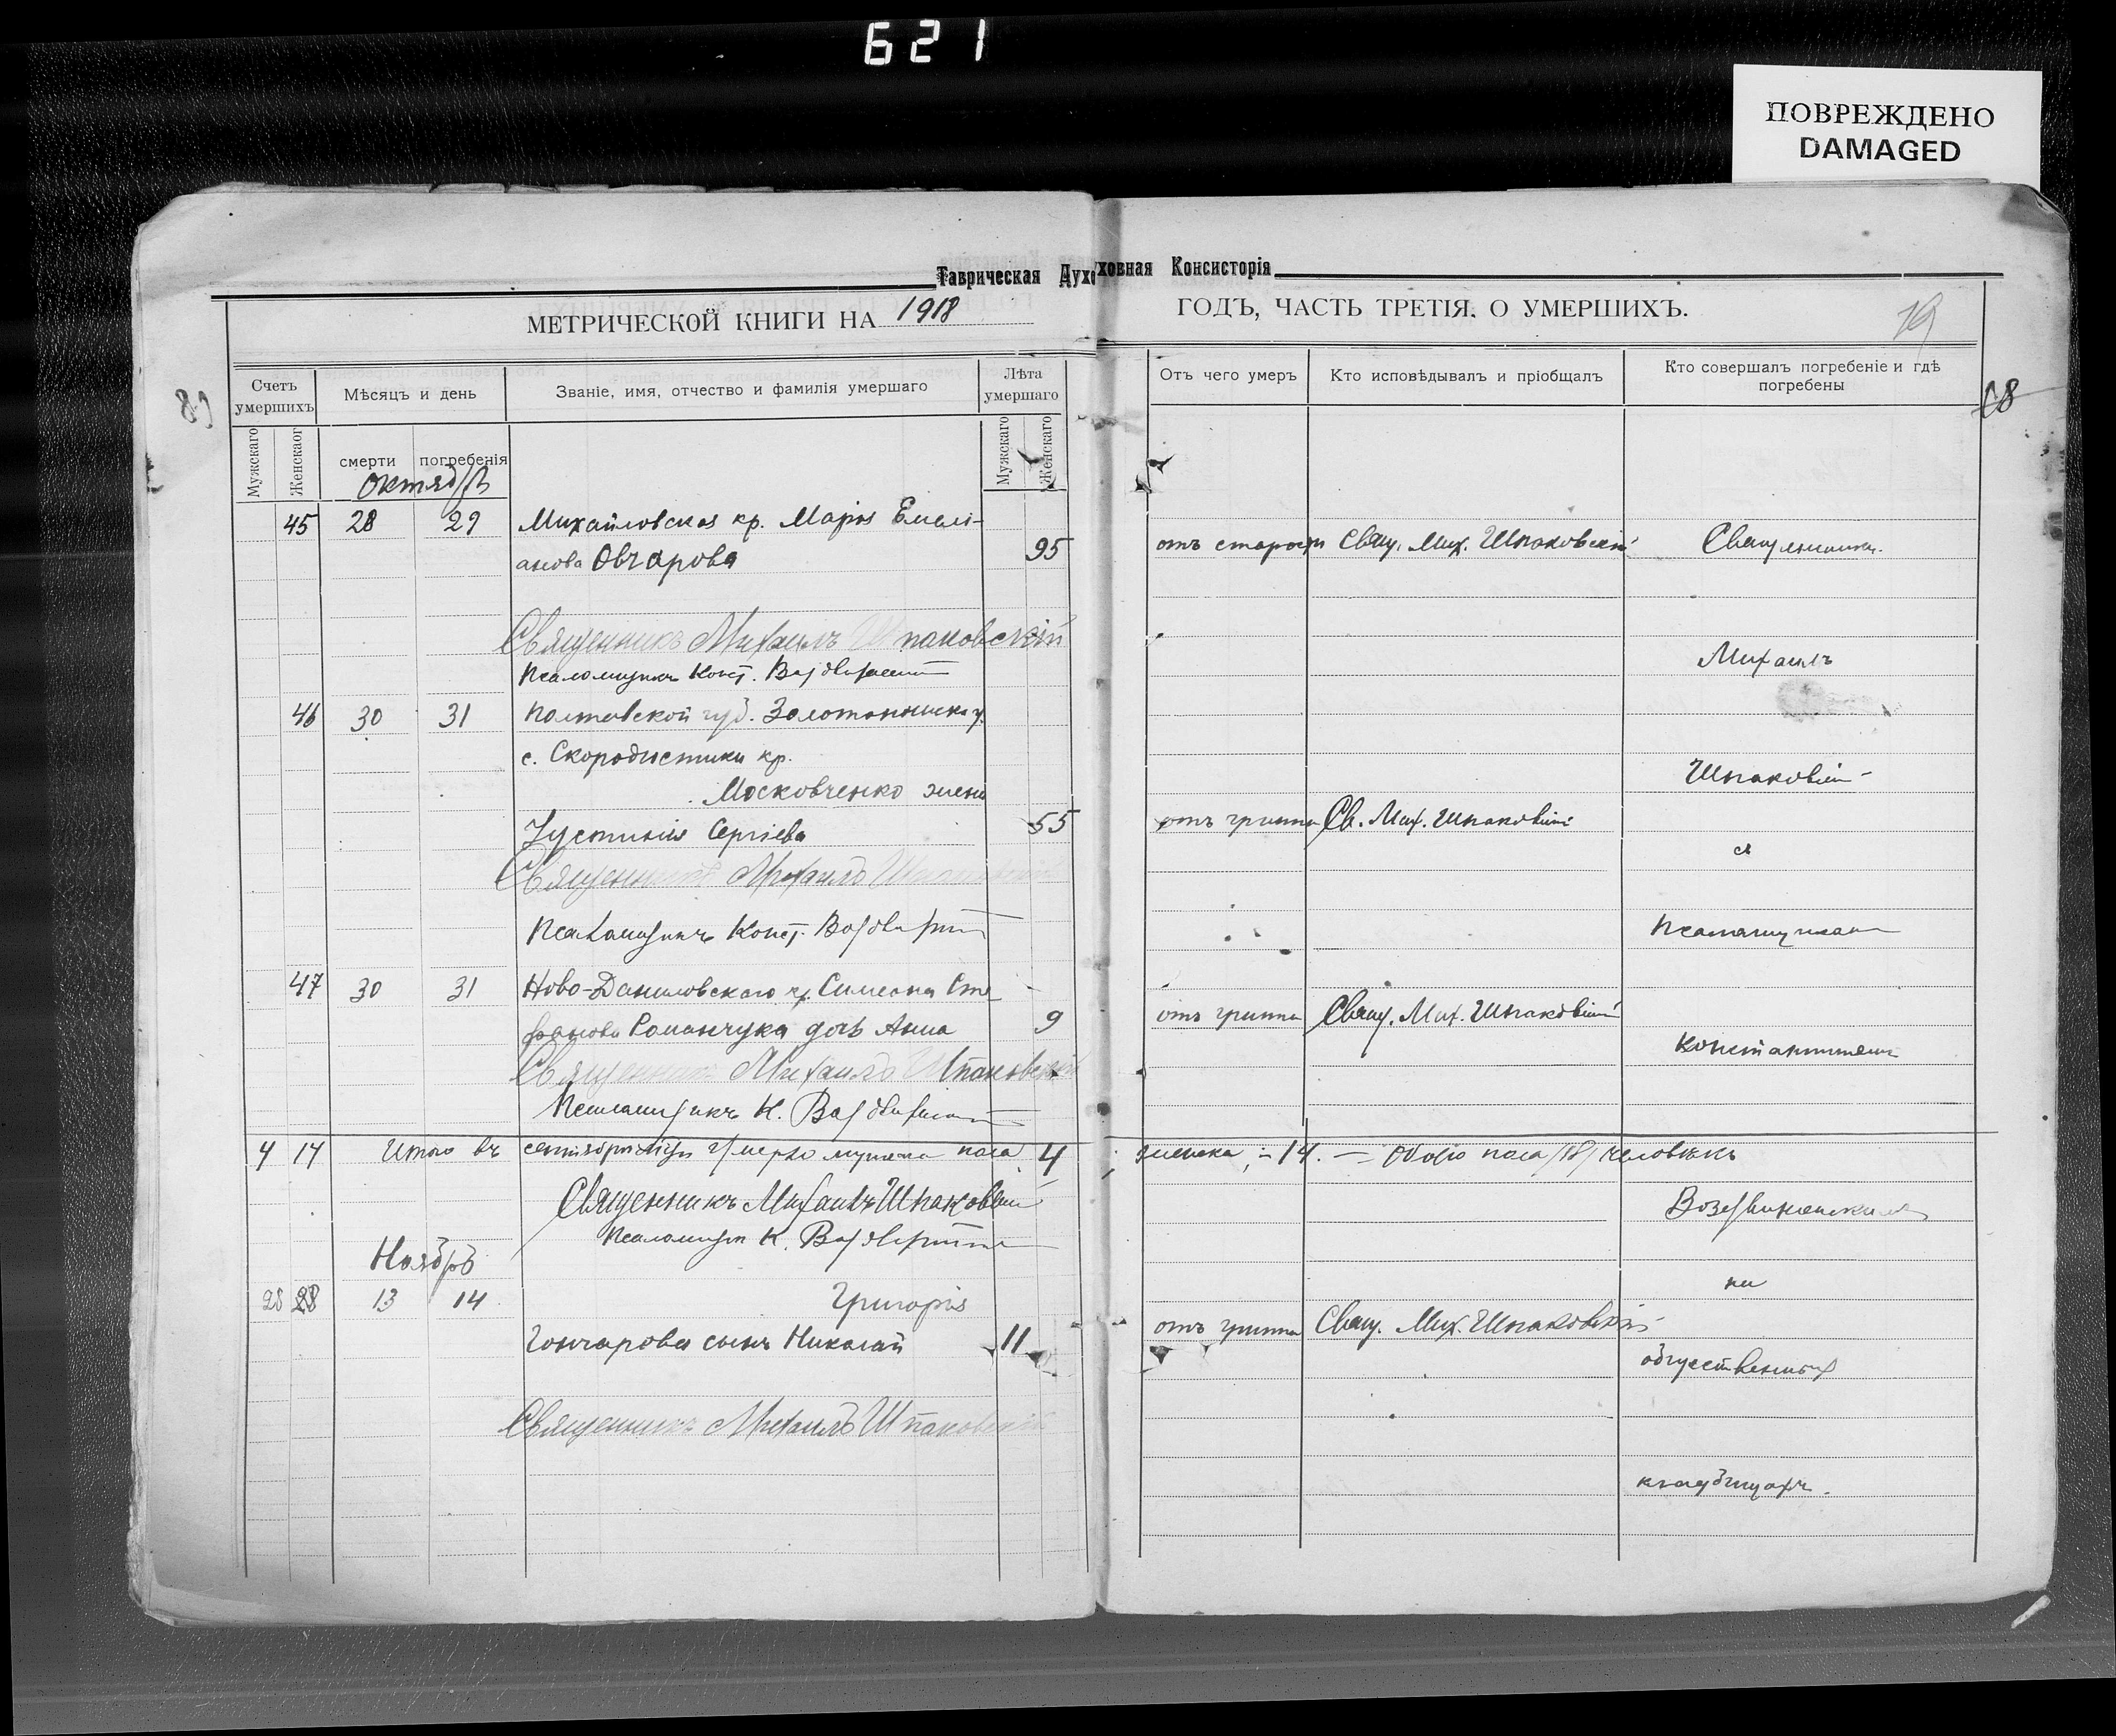 621
ПОВРЕЖДЕНО
DAMAGED
Таврическая Духовная Консисторія
МЕТРИЧЕСКОЙ КНИГИ НА 1918 ГОДЪ, ЧАСТЬ ТРЕТІЯ, О УМЕРШИХЪ.
19
68
Счетъ умершихъ
Мѣсяцъ и день
Званіе, имя, отчество и фамилія умершаго
Лѣта умершаго
Отъ чего умеръ
Кто исповѣдывалъ и пріобщалъ
Кто совершалъ погребеніе и гдѣ
погребены
Мужскаго
Женскаог
смерти
погребенія
Мужскаго
Женскаго
Октябрь
45 28 29 Михайловская кр. Марія Емелі-
анова Овчарова 95 отъ старости Свящ. Мих. Шпаковскій Священникъ
Священникъ Михаилъ Шпаковскій
Михаилъ
Псаломщикъ Конст.
46 30 31 Полтавской губ. Золотоношск. у.
с. Скородистики кр.
Шпаковскій
Московченко жена
Іустинія Сергіева 55 отъ гриппа Св. Мих. Шпаковскій
съ
Священникъ Михаилъ Шпаковскій
Псаломщикъ Конст.
Псаломщикомъ
47 30 31 Ново-Даниловскаго кр. Симеона Сте-
фанова Романчука дочь Анна 9 отъ гриппа Свящ. Мих. Шпаковскій
Константиномъ
Священникъ Михаилъ Шпаковскій
Псаломщикъ К.
4 14 Итого въ умерло мужска пола 4 женска 14. — Обоего пола /18/ человѣкъ
Священникъ Михаилъ Шпаковскій
Воздвиженскимъ
Псаломщикъ К.
Ноябрь
на
28 28 13 14 Григорія
Гончарова сынъ Николай 11 отъ гриппа Свящ. Мих. Шпаковскій
общественныхъ
Священникъ Михаилъ Шпаковскій
кладбищахъ.